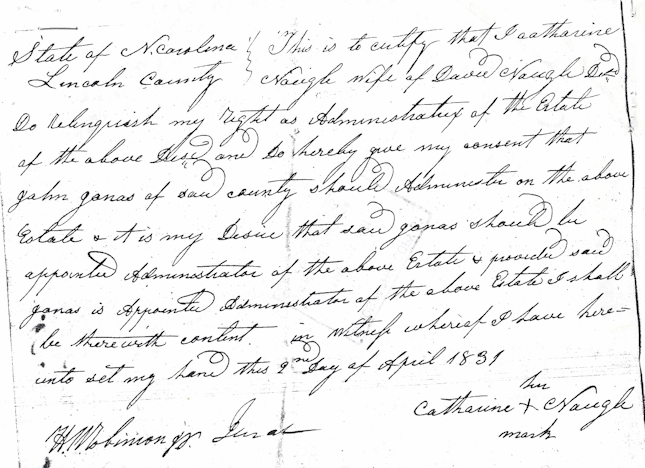 State of N. Carolina } This is to certify that I catharine
Lincoln County } Naugle wife of David Naugle Decd
Do relinquish my right as Administratrix of the Estate
of the above Decd and Do hereby give my consent that
john jonas of said county should Administer on the above
Estate & it is my Desire that said jonas should be
appointed Administrator of the above Estate & provided said
jonas is Appointed Administrator of the above Estate I shall
be therewith content. in witness whereof I have here=
unto set my hand this 2nd Day of April 1831
her
Catharine + Naugle
mark
Jurat